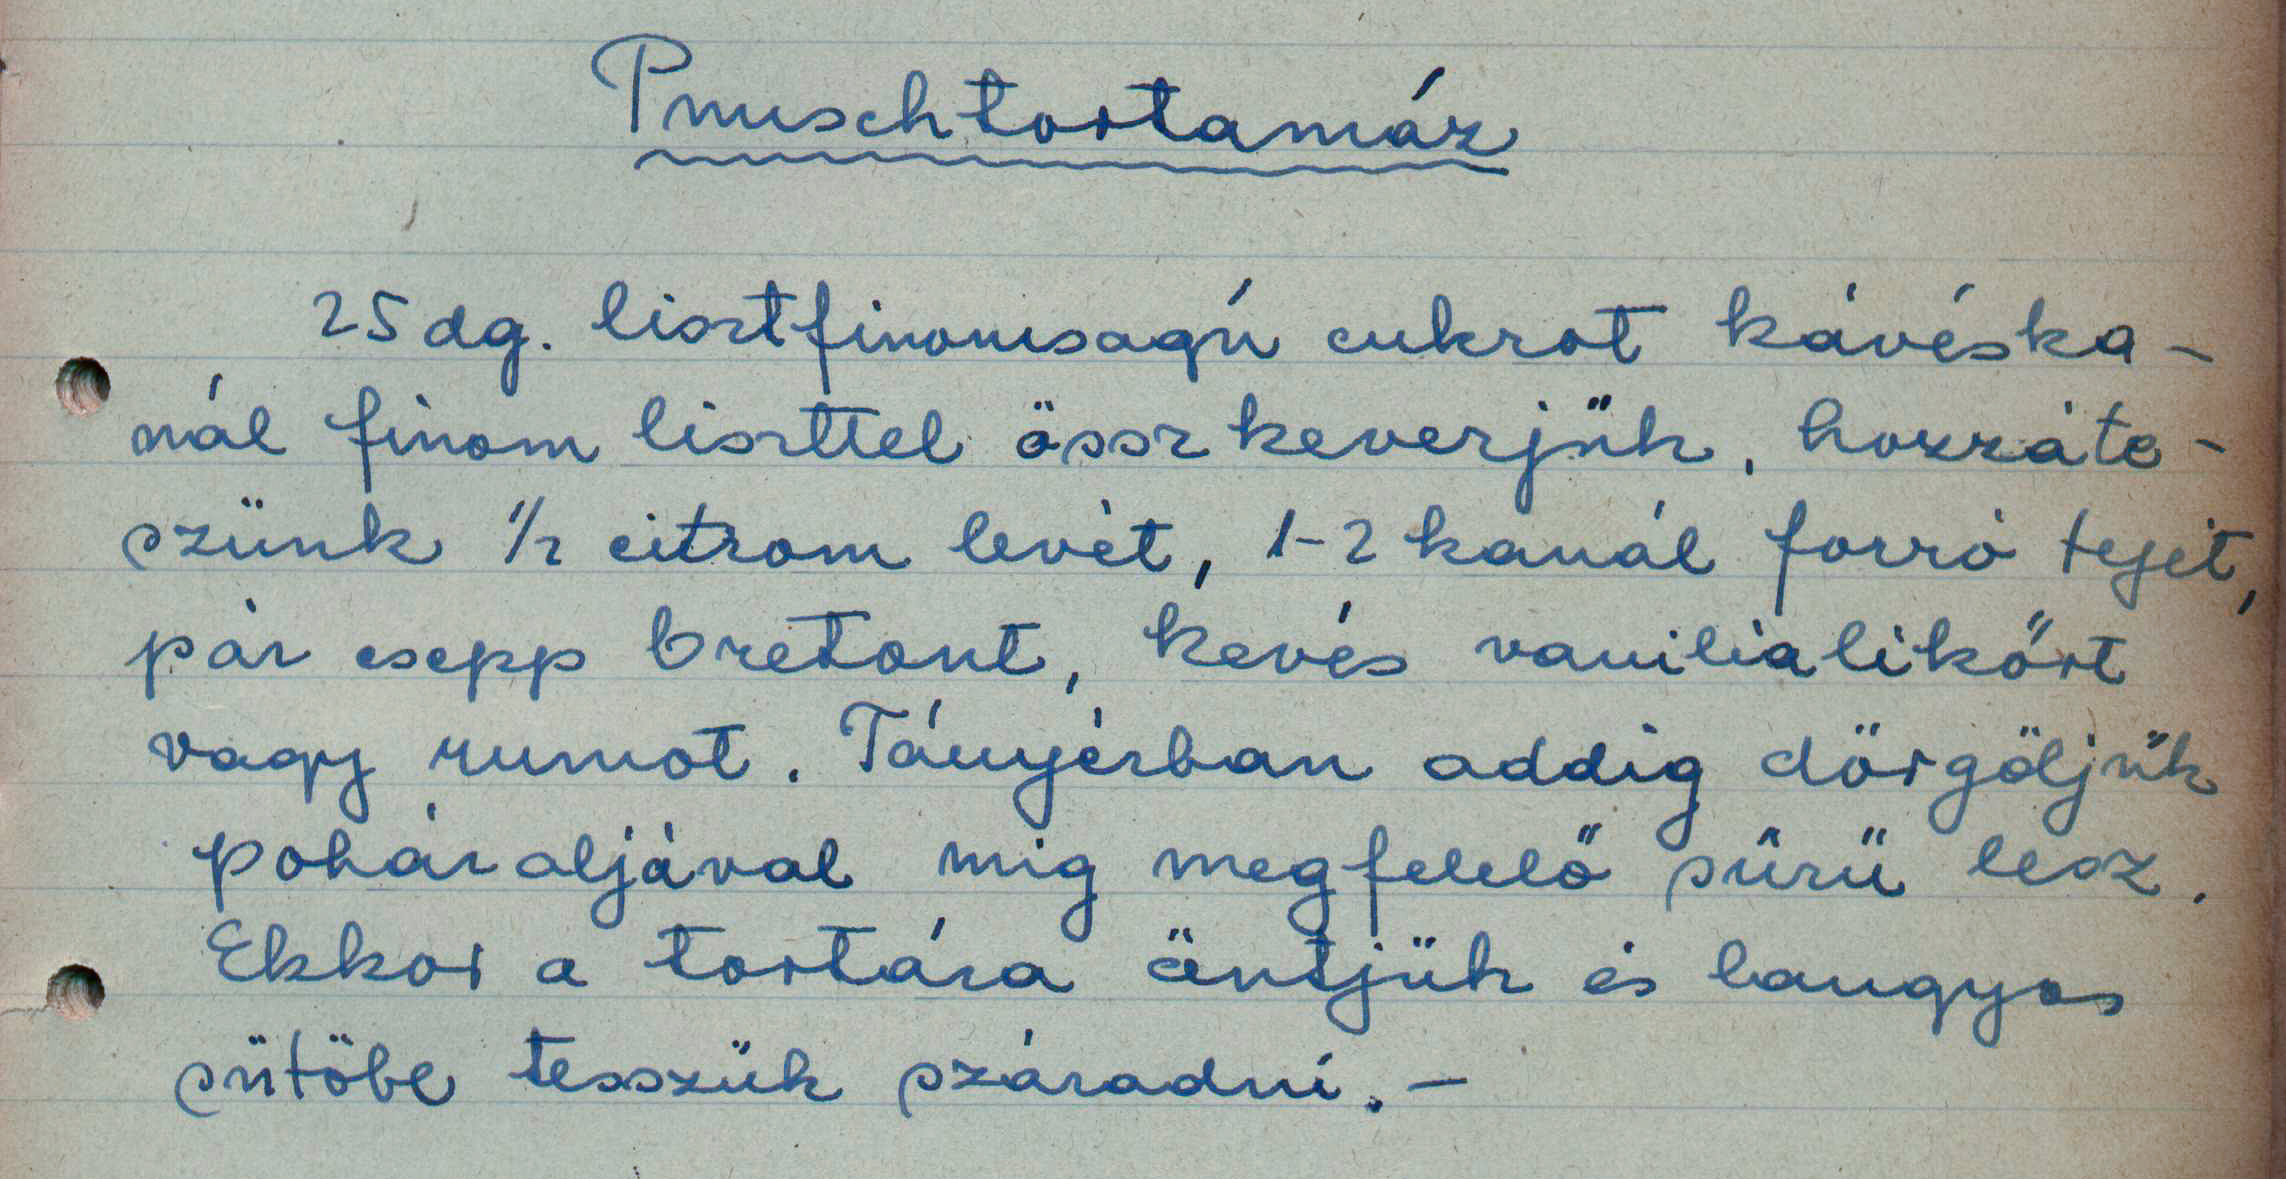 Pnuschtortamáz
25 dg. lisztfinomsagú cukrot kávéska-
nál finom liszttel össz keverjük, hozzáte-
szünk 1/2 citrom levét, 1-2 kanál forró tejet,
pár csepp bretont, kevés vanilialikőrt
vagy rumot. Tányérban addig dörgöljük
pohár aljával mig megfelelő sűrű lesz.
Ekkor a tortára öntjük és langyos
sütöbe tesszük száradni. -